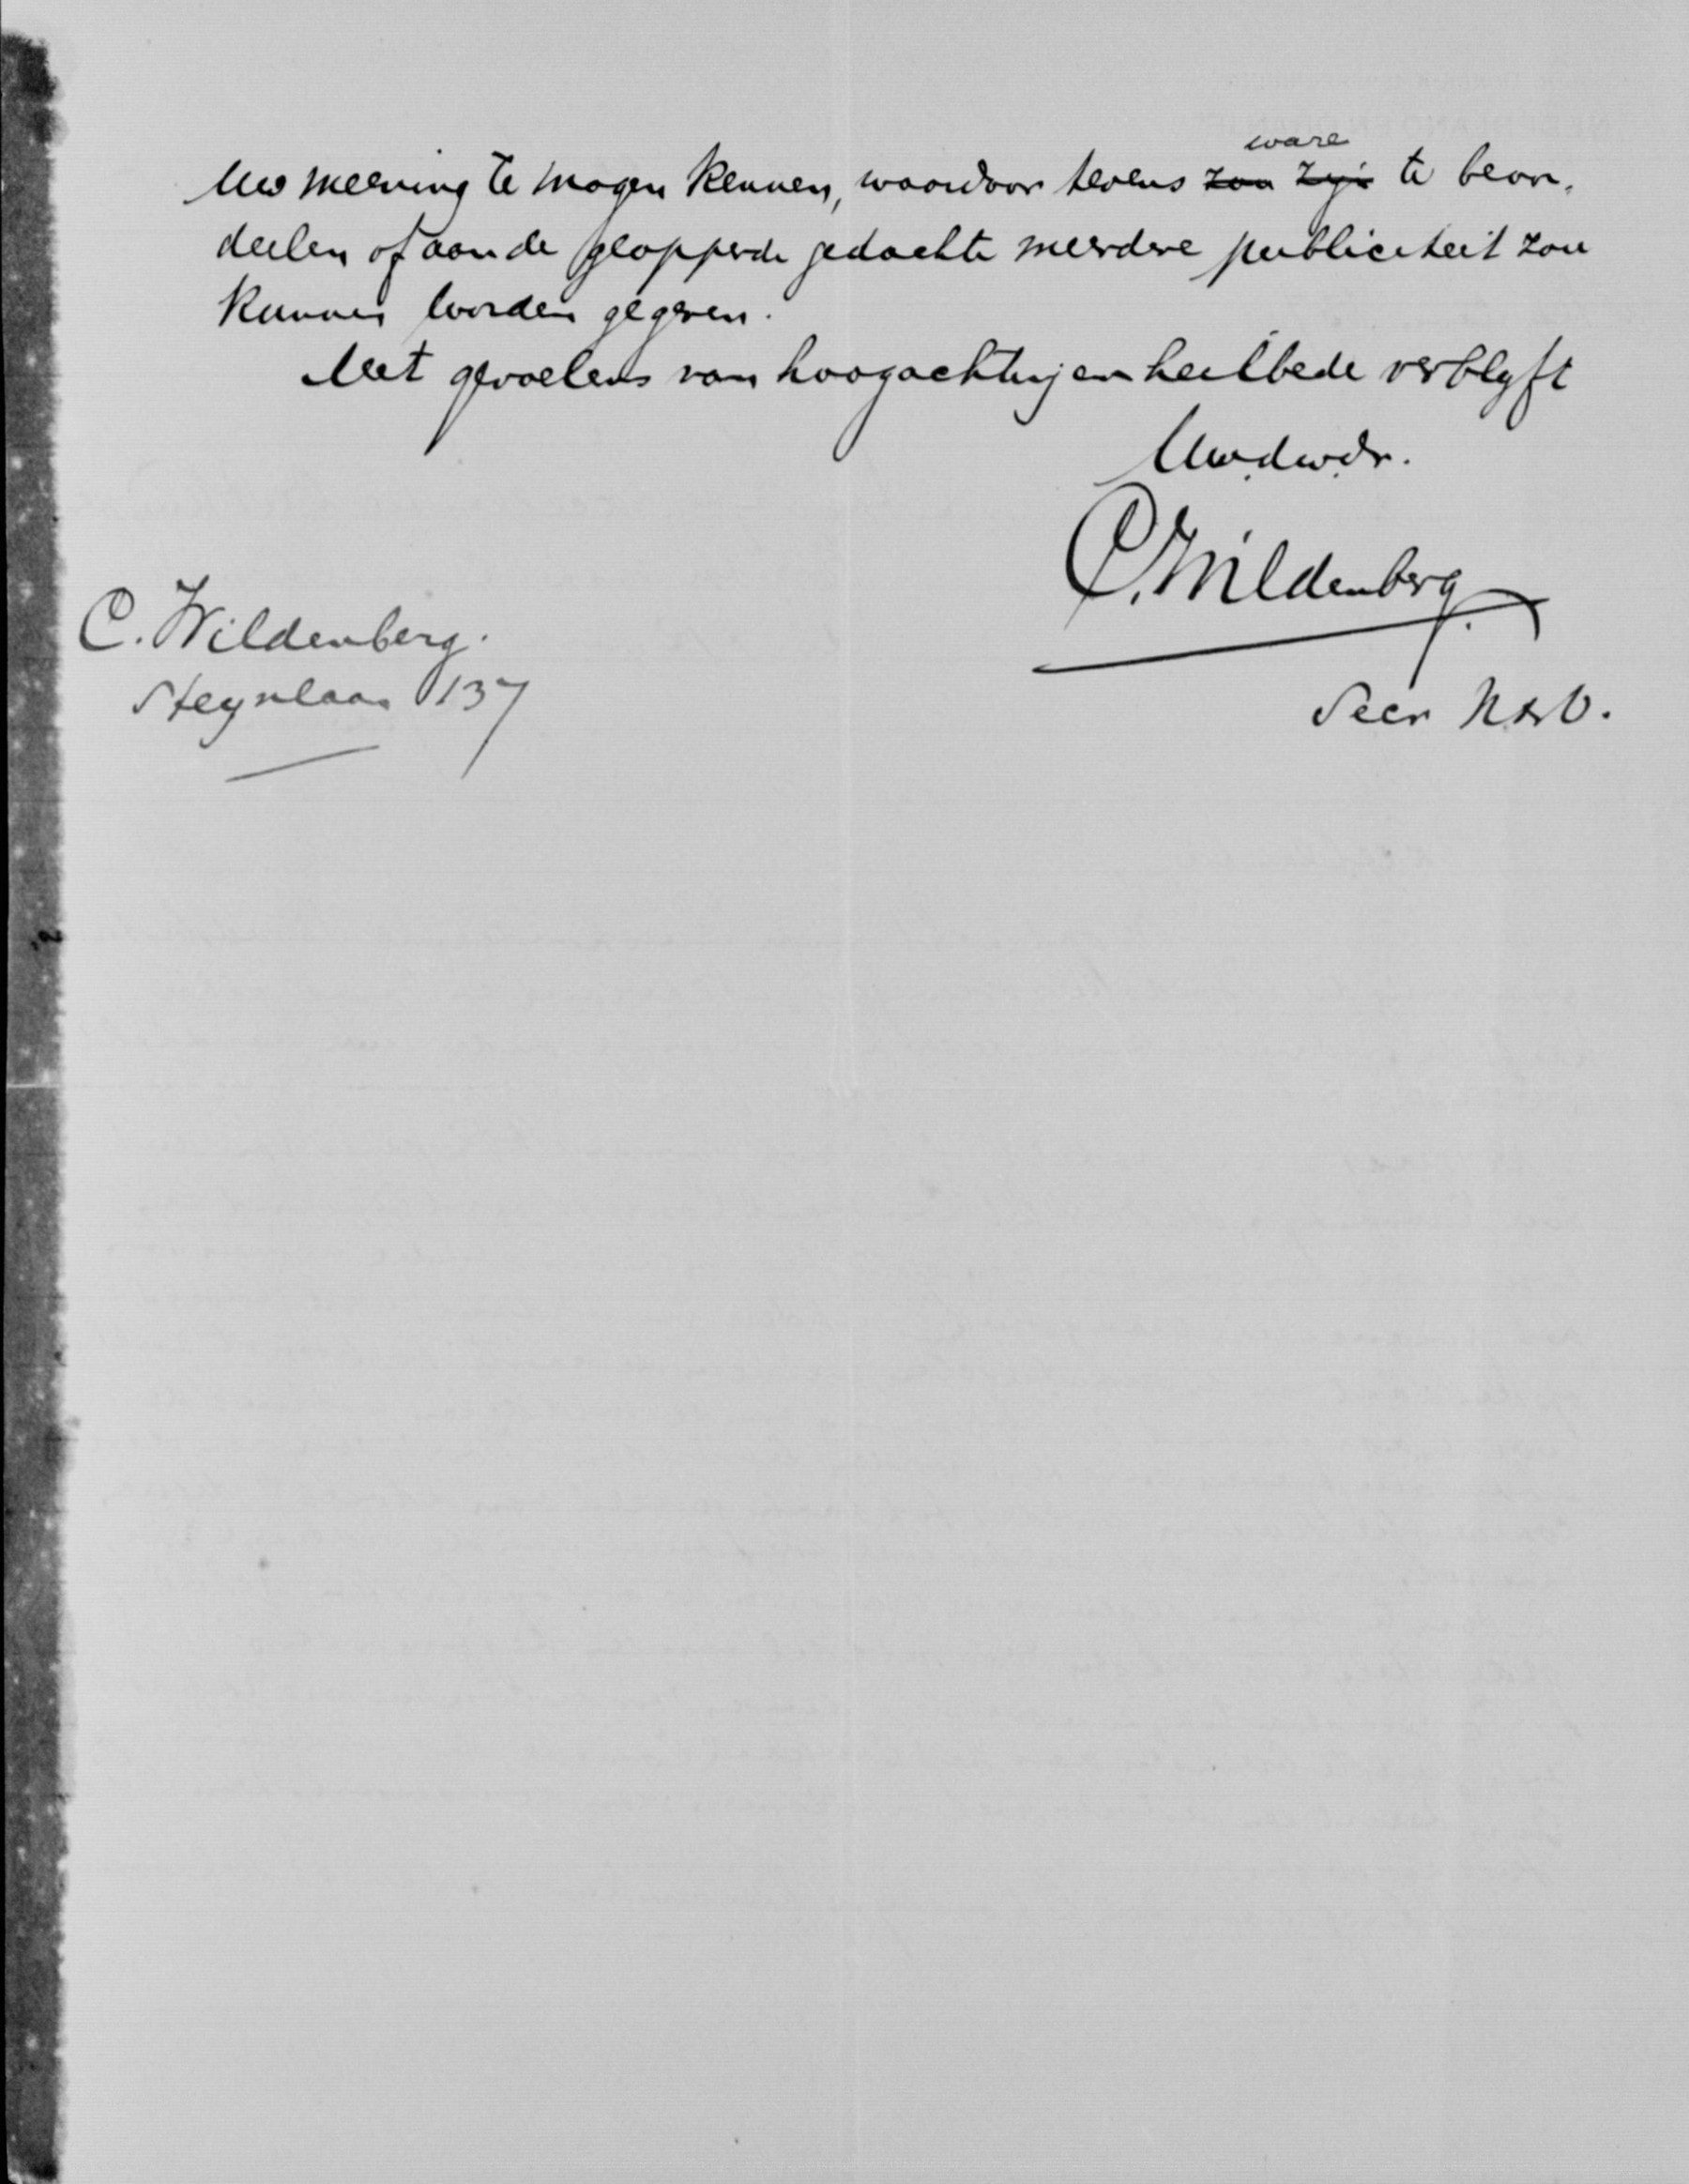 Uw meening te mogen kennen, waardoor tevens ~~zou zijn~~ ware te beoor-
deelen of aan de geopperde gedachte meerdere publiciteit zou
kunnen worden gegeven.
Met gevoelens van hoogachting en heilbede verblijft
Uw.dw.dr.
C. Wildenberg.
C. Wildenberg.
Steynlaan 137
Secr